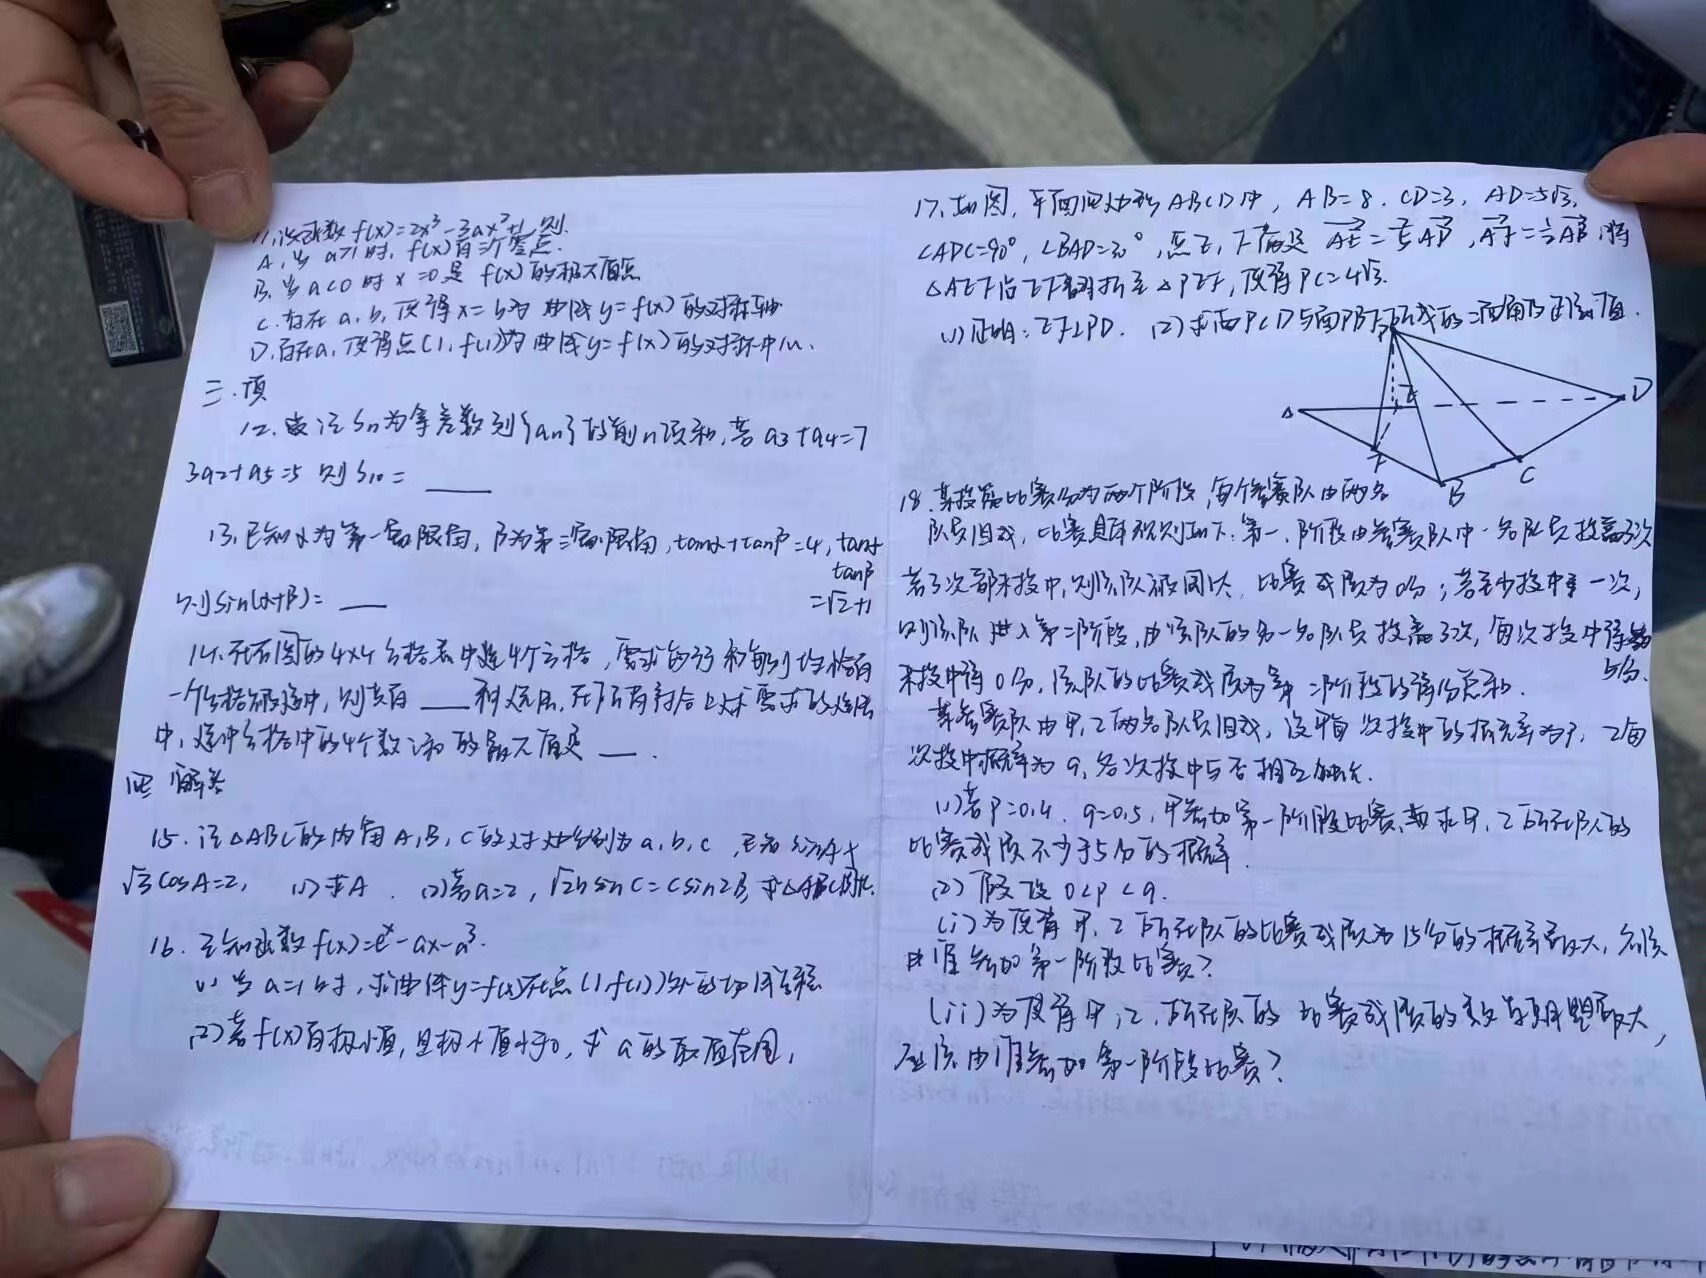 11.设函数f(x)=2x³-3ax²+1,则
A.当a>1时,f(x)有三个零点.
B.当a<0时x=0是f(x)的极大值点
C.存在a,b,使得x=b为曲线y=f(x)的对称轴
D.存在a,使得点(1,f(1))为曲线y=f(x)的对称中心.
三.填
12.设记Sn为等差数列{an}的前n项和,若a3+a4=7
3a2+a5=5 则S10=
13.已知α为第一象限角,β为第三象限角,tanα+tanβ=4,tanα
tanβ
=√2+1
则sin(α+β)=
14.在右图的4×4方格表中选4个方格,需求每行和每列均恰有
一个方格被选中,则共有 种选法,在所有符合上述要求的选法
中,选中方格中的4个数之和的最大值是 .
四 解答
15.记△ABC的内角A,B,C的对边分别为a,b,c,已知sinA+
√3cosA=2, (1)求A. (2)若a=2,√2bsinC=Csin2B,求△ABC周长.
16.已知函数f(x)=eˣ-ax-a³.
(1)当a=1时,求曲线y=f(x)在点(1,f(1))处的切线方程
(2)若f(x)有极小值,且极小值小于0,求a的取值范围,
17.如图,平面四边形ABCD中,AB=8.CD=3,AD=5√3,
∠ADC=90°,∠BAD=30°,点E,F满足AE=2/5AD,AF=1/2AB,将
△AEF沿EF翻折至△PEF,使得PC=4√3.
(1)证明:EF⊥PD. (2)求面PCD与面PBF所成的二面角的正弦值.
P
A
E
D
F
B
C
18.某投篮比赛分为两个阶段,每个参赛队由两名
队员组成,比赛具体规则如下:第一阶段由参赛队中一名队员投篮3次
若3次都未投中,则该队被淘汰,比赛成绩为0分;若至少投中一次,
则该队进入第二阶段,由该队的另一名队员投篮3次,每次投中得
5分.
未投中得0分,该队的比赛成绩为第二阶段的得分总和.
某参赛队由甲,乙两名队员组成,设甲每次投中的概率为P,乙每
次投中概率为q,各次投中与否相互独立.
(1)若P=0.4,q=0.5,甲参加第一阶段比赛,求甲,乙所在队的
比赛成绩不少于5分的概率.
(2)假设0<P<q.
(i)为使得甲,乙所在队的比赛成绩为15分的概率最大,应该
由谁参加第一阶段比赛?
(ii)为使得甲,乙,所在队的比赛成绩的数学期望最大,
应该由谁参加第一阶段比赛?